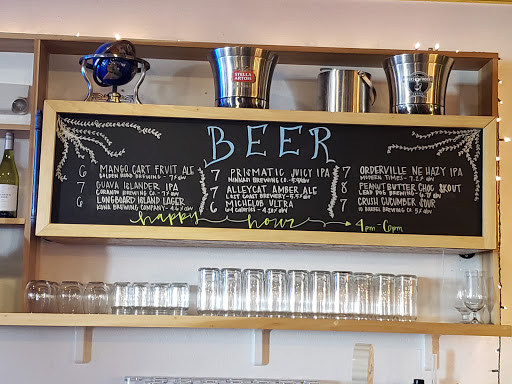 STELLA
ARTOIS
BEER
6 MANGO CART FRUIT ALE
GOLDEN ROAD BREWING - %ABV
7 GUAVA ISLANDER IPA
CORONADO BREWING CO. - 7% ABV
6 LONGBOARD ISLAND LAGER
KONA BREWING COMPANY - 4.6% ABV
7 PRISMATIC JUICY IPA
NINKASI BREWING CO. - 5.9% ABV
7 ALLEYCAT AMBER ALE
LOST COAST BREWERY - 5.5% ABV
6 MICHELOB ULTRA
7 ORDERVILLE NE HAZY IPA
MODERN TIMES - 7.2% ABV
8 PEANUT BUTTER CHOC STOUT
LEAD DOG BREWING
7 CRUSH CUCUMBER SOUR
10 BARREL BREWING CO. 5% ABV
happy hour 4pm - 6pm